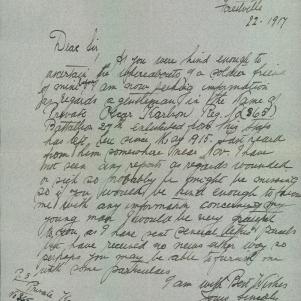 Foxville
22-1917
Dear Sir,
As you were kind enough to
ascertain the whereabouts of a soldier friend
of mine I am now seeking information
as regards a gentleman in the name of
Private Oscar (2865)
Battalion 27th enlisted 1915 this
has left here since May 1915. I ain't heard
from him somewhere since Nov. I have
not seen any reports as regards wounded
or sick so probably he might be missing
so if you would be kind enough to
me with any information concerning
young man I would be very grateful
to you, as I have sent several letters parcels
but have received no news either way so
perhaps you may be able to furnish me
with some particulars
I am with Best Wishes
Yours Sincerely
P.S.
Private